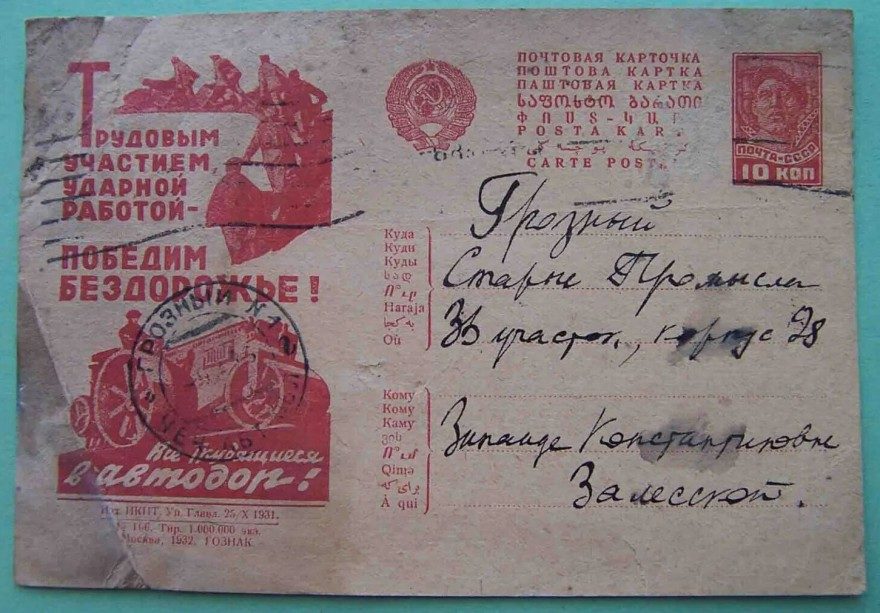 Трудовым
участием,
ударной
работой-
победим
бездорожье!
Все трудящиеся
в автодор!
Изд. НКПТ. Уп. Главл. 25, X 1931.
№ 166. Тир. 1.000.000 экз.
Москва, 1932. ГОЗНАК.
ГРОЗНЫЙ №1
ПОЧТОВАЯ КАРТОЧКА
ПОШТОВА КАРТКА
ПАШТОВАЯ КАРТКА
ᲡᲐᲤᲝᲡᲢᲝ ᲑᲐᲠᲐᲗᲘ
ՓՈՍՏ-
POSTA KAR
CARTE POST
ПОЧТА-СССР
10 КОП
Куда
Куди
Куды
სად
Ո՞ւր
Haraja
Où
Грозный
Старые Промысла
36 участок, корпус 28
Кому
Кому
Каму
ვის
Ո՞ւմ
Qimə
À qui
Зинаиде Константиновне
Залесской.